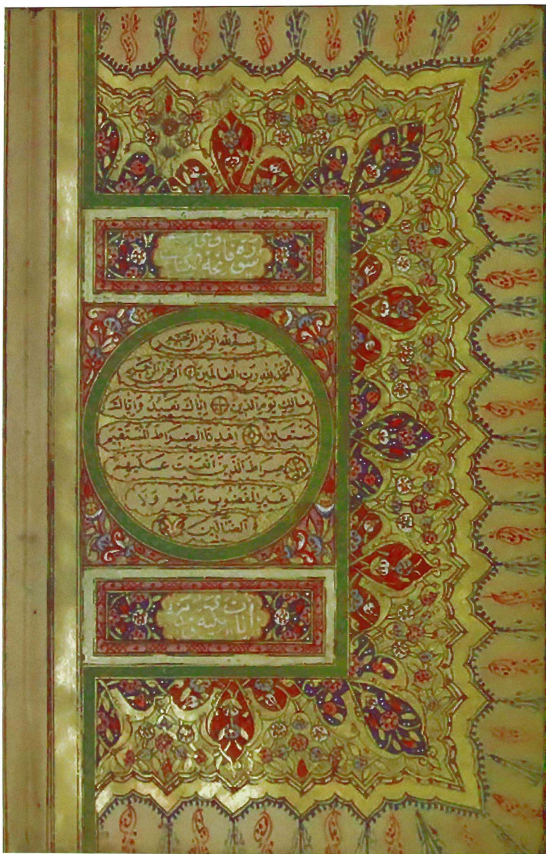 سورة فاتحة
الكتاب
بسم الله الرحمن الرحيم
الحمد لله رب العالمين الرحمن الرحيم
مالك يوم الدين اياك نعبد واياك
نستعين اهدنا الصراط المستقيم
صراط الذين انعمت عليهم
غير المغضوب عليهم ولا
الضالين